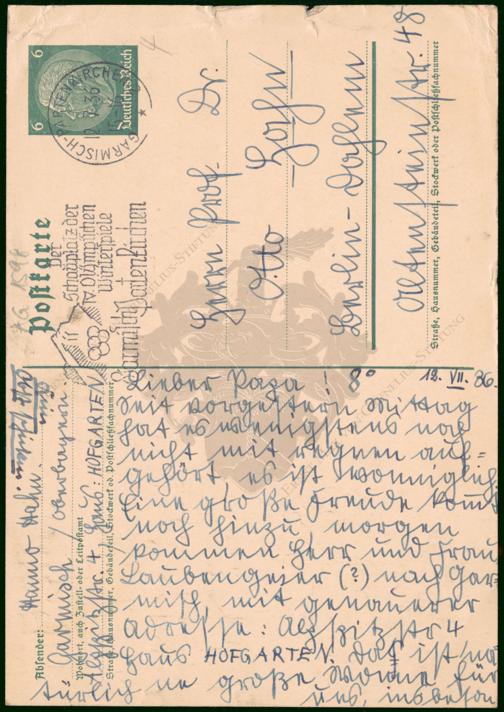 6
6
Deutsches Reich
GARMISCH-PARTENKIRCHEN
12.7.36
Postkarte
der
Schauplatz der
IV. Olympischen
Winterspiele
Garmisch
Partenkirchen
Herrn Prof. Dr.
Otto Hahn
Berlin-Dahlem
Altensteinstr. 48
Straße, Hausnummer, Gebäudeteil, Stockwerk oder Postschließfachnummer
Absender: Hanno Hahn.
Garmisch / Oberbayern
Wohnort, auch Zustell- oder Leitpostamt
Alpspitzstr. 4. Haus: HOFGARTEN
Straße, Hausnummer, Gebäudeteil, Stockwerk od. Postschließfachnummer
Lieber Papa! 8° 12. VII. 36.
Seit vorgestern Mittag
hat es wenigstens mal
nicht mit regnen auf-
gehört es ist wonniglich
Eine große Freude kommt
noch hinzu morgen
kommen Herr und Frau
Laubengeier (?) nach Gar-
misch, mit genauerer
Adresse: Alpspitzstr 4
Haus HOFGARTEN. Das ist na-
türlich ne große Wonne für
uns, insbeson